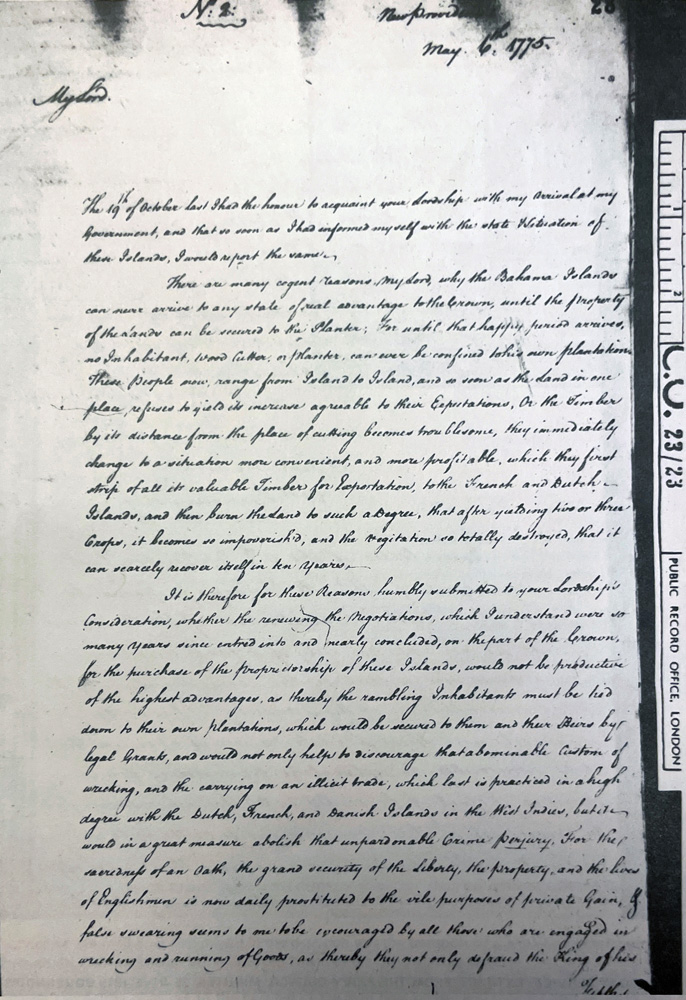 No. 2.
New Provid
May. 6th. 1775.
My Lord.
The 19th of October last I had the honour to acquaint your Lordship with my Arrival at my
Government, and that so soon as I had informed myself with the state & Situation of
these Islands, I would report the same.
There are many cogent reasons, My Lord, why the Bahama Islands
can never arrive to any state of real advantage to the Crown, until the Property
of the Lands can be secured to the Planter; For until that happy period arrives,
no Inhabitant, Wood Cutter, or Planter, can ever be confined to his own plantation.
These People now, range from Island to Island, and so soon as the Land in one
place, refuses to yield its increase agreable to their Expectations, Or the Timber
by its distance from the place of cutting becomes troublesome, they immediately
change to a situation more convenient, and more profitable, which they first
strip of all its valuable Timber for Exportation, to the French and Dutch
Islands, and then burn the Land to such a Degree, that after yielding two or three
Crops, it becomes so impoverish'd, and the vegitation so totally destroyed, that it
can scarcely recover itself in ten Years.
It is therefore for these Reasons humbly submitted to your Lordship's
Consideration, whether the renewing the Negotiations, which I understand were so
many years since entred into and nearly concluded, on the part of the Crown,
for the purchase of the Proprietorship of these Islands, would not be productive
of the highest advantages, as thereby the rambling Inhabitants must be tied
down to their own plantations, which would be secured to them and their Heirs by
legal Grants, and would not only help to discourage that abominable Custom of
wrecking, and the carrying on an illicit trade, which last is practiced in a high
degree with the Dutch, French, and Danish Islands in the West Indies, but it
would in a great measure abolish that unpardonable Crime Perjury. For the
sacredness of an Oath, the grand security of the Liberty, the property, and the lives
of Englishmen is now daily prostituted to the vile purposes of private Gain, &
false swearing seems to me to be encouraged by all those who are engaged in
wrecking and running of Goods, as thereby they not only defraud the King of his
2
C.O. 23/23
PUBLIC RECORD OFFICE, LONDON